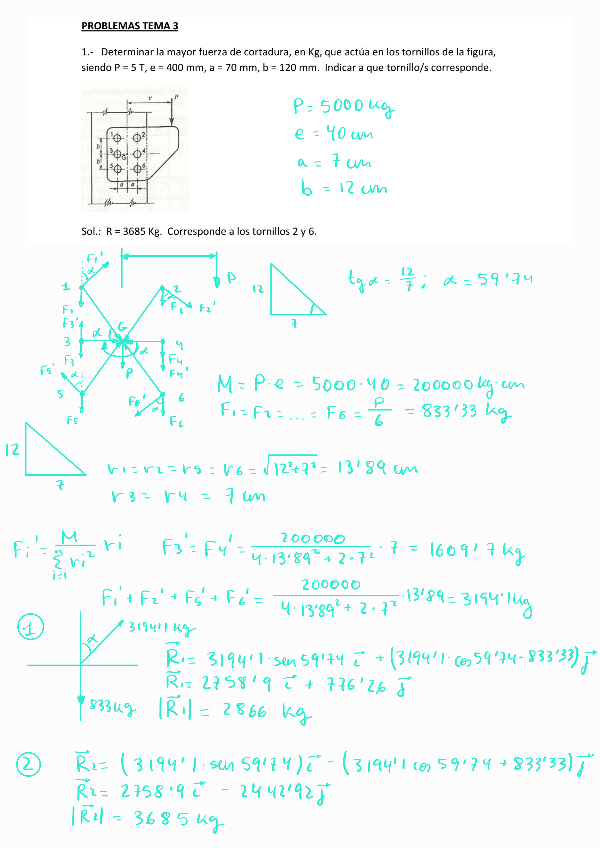 PROBLEMAS TEMA 3
1.- Determinar la mayor fuerza de cortadura, en Kg, que actúa en los tornillos de la figura,
siendo P = 5 T, e = 400 mm, a = 70 mm, b = 120 mm. Indicar a que tornillo/s corresponde.
e P
1 2
3 G 4
5 6
b
b
a a
P = 5000 kg
e = 40 cm
a = 7 cm
b = 12 cm
Sol.: R = 3685 Kg. Corresponde a los tornillos 2 y 6.
F1' α
1 2 P
F1 α F2 F2'
F3' α G
3 4
F3 α F4
F5' P F4'
α
5 F6' α 6
F5 F6
12
7
tg α = 12/7 ; α = 59'74
M = P·e = 5000·40 = 200000 kg·cm
F1 = F2 = ... = F6 = P/6 = 833'33 kg
12
7
r1 = r2 = r5 = r6 = √12²+7² = 13'89 cm
r3 = r4 = 7 cm
Fi' = M/(n Σ i=1 ri²) ri F3' = F4' = 200000/(4·13'89² + 2·7²) · 7 = 1609'7 kg
F1' + F2' + F5' + F6' = 200000/(4·13'89² + 2·7²) · 13'89 = 3194'1 kg
1
α 3194'1 kg
833 kg
R1 = 3194'1·sen 59'74 i + (3194'1·cos 59'74 - 833'33) j
R1 = 2758'9 i + 776'26 j
|R1| = 2866 kg
2 R2 = (3194'1·sen 59'74) i - (3194'1 cos 59'74 + 833'33) j
R2 = 2758'9 i - 2442'92 j
|R2| = 3685 kg